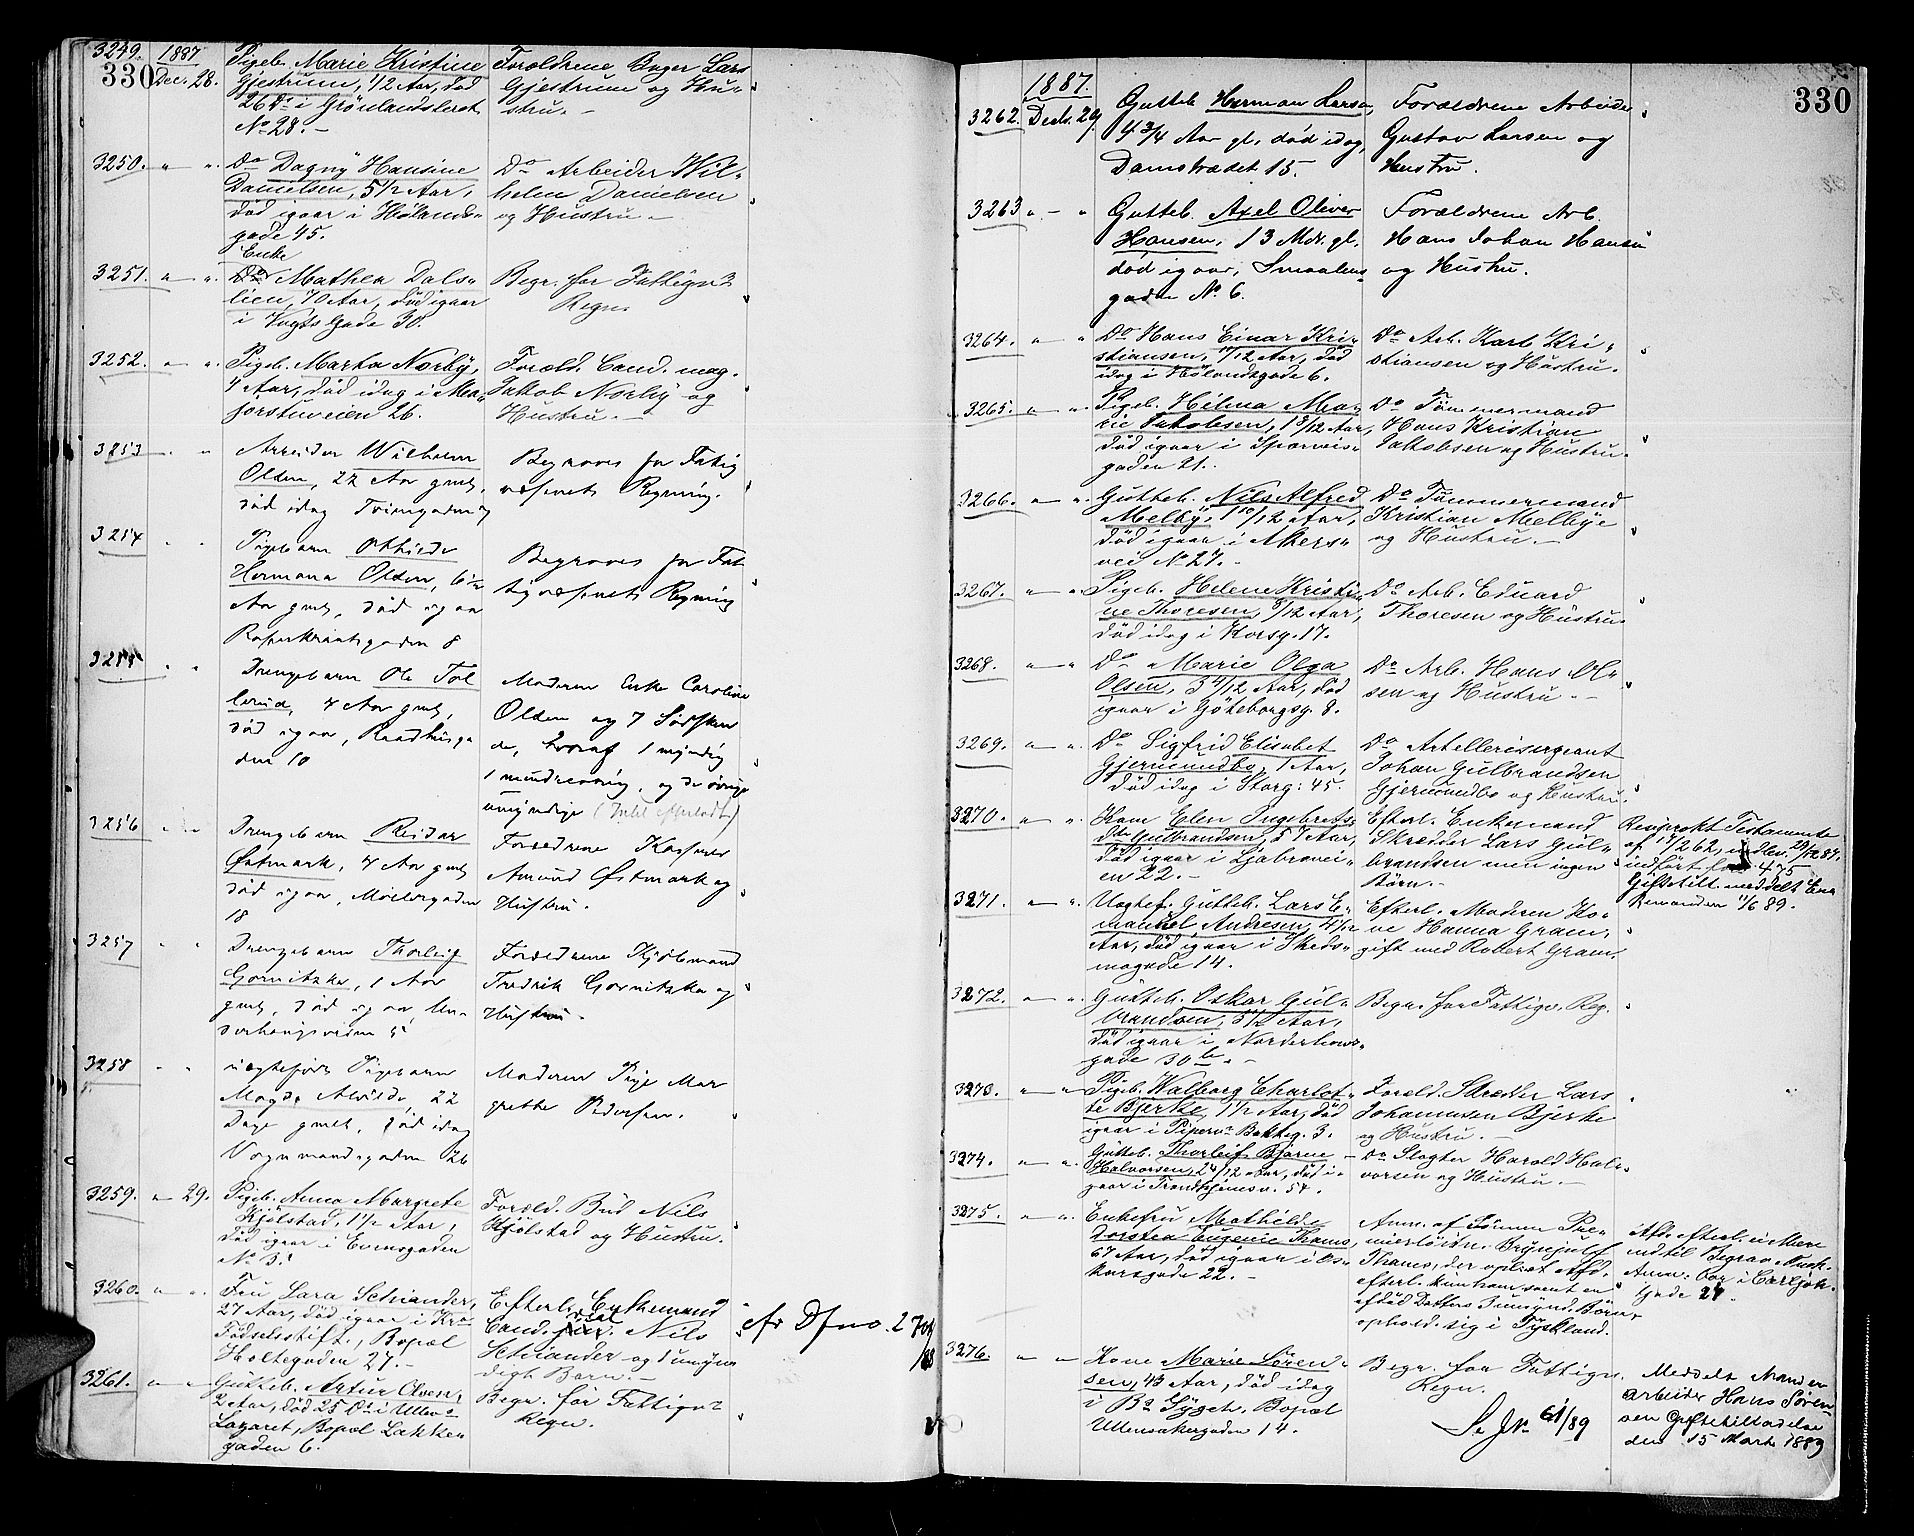 330
3249. 1887 Dec. 28. Pigeb. Marie Kristine
Gjestrum, 1/2 Aar, död
26 Ds i Grönlandsleret
No 28. –
Forældrene Bager Lars
Gjestrum og Hu-
stru. –
3250. " " Do Dagny Hansine
Danielsen, 5 1/2 Aar,
död igaar i Hølands-
gade 45.
Do Arbeider Wil-
helm Danielsen
og Hustru. –
3251. " " Enke
Do Mathea Dals-
lien, 70 Aar, död igaar
i Vogts Gade 30.
Begr. for Fattigv.s
Regn.
3252. " " Pigeb. Marta Norby,
4 Aar, död idag i Ma-
jorstuveien 26.
Foræld. Cand. mag.
Jakob Norby og
Hustru. –
3253 " " Arbeider Wilhelm
Olden, 22 Aar gml,
död idag
Begraves for Fatig
væsenets Regning.
3254 " " Pigebarn Othilde
Hermana Olden, 6 1/2
Aar gml, död igaar
Rosenkrantzgaden 8
Begraves for Fat
tigvæsenets Regning
3255 " " Drengebarn Ole Tol
lerud, 4 Aar gml,
död igaar, Raadhusga
den 10
Moderen Enke Caroline
Olden og 7 Södsken
de, hvoraf 1 myndig
1 mindreaarig, og de øvrige
umyndige (Intet efterladt)
3256 " " Drengebarn Reidar
Østmark, 4 Aar gml
död igaar, Möllergaden
18
Forældrene Kasserer
Amund Østmark og
Hustru.
3257 " " Drengebarn Thorleif
Gornitzka, 1 Aar
gml, död igaar, Un-
derhaugsveien 5
Forældrene Kjöbmand
Fredrik Gornitzka og
Hustru.
3258 " " uægtefödt Pigebarn
Magda Alvilde, 22
Dage gml, död idag
Vognmandsgaden 26
Moderen Pige Mar
grethe Pedersen.
3259. " 29. Pigeb. Anna Margrete
Kjölstad, 1 1/2 Aar,
död igaar i Evensgaden
No 3.
Foræld. Bud Nils
Kjölstad og Hustru.
3260. " " Fru Lara Schiander,
27 Aar, död igaar i Kra
Födselsstift., Bopæl
Holtegaden 27. –
Efterl. Enkemand
Cand. real. Nils
Schiander og 1 umyn
digt Barn. –
cfr Dfno. 2
3261. " " Gutteb. Artur Olsen,
2 Aar, död 25 Ds i Ullev.
Lazaret, Bopæl Lakke-
gaden 6.
Begr. for Fattigv.
Regn.
330
1887.
3262. Decb. 29. Gutteb. Herman Larsen,
4 3/4 Aar gl. död idag,
Damstrædet 15.
Forældrene Arbeider
Gustav Larsen og
Hustru.
3263 " – " Gutteb. Axel Oliver
Hansen, 13 Mdr. gl.
död igaar, Smaalens-
gaden No 6.
Forældrene Arb.
Hans Johan Hansen
og Hustru.
3264. " " Do Hans Einar Kri-
stiansen, 11/12 Aar, död
idag i Hølandsgade 6.
Do Arb. Karl Kri-
stiansen og Hustru.
3265. " " Pigeb. Hilma Ma-
rie Jakobsen, 1 9/12 Aar,
död igaar i Sporveis-
gaden 21.
Do Tömmermand
Hans Kristian
Jakobsen og Hustru.
3266. " " Gutteb. Nils Alfred
Melby, 1 10/12 Aar,
död igaar i Akers-
vei No 27. –
Do Tömmermand
Kristian Melbye
og Hustru. –
3267. " " Pigeb. Helene Kristi-
ne Thoresen, 9/12 Aar,
död idag i Korsg. 17.
Do Arb. Eduard
Thoresen og Hustru
3268. " " Do Marie Olga
Olsen, 3 4/12 Aar, död
igaar i Göteborgsg. 8.
Do Arb. Hans Ol-
sen og Hustru. –
3269. " " Do Sigfrid Elisabet
Gjermundbo, 1 Aar,
död idag i Storg: 45.
Do Artellerisergeant
Johan Gulbrandsen
Gjermundbo og Hustru.
3270. " " Kone Elen Ingebrets-
dtr Gulbrandsen, 57 Aar,
död igaar i Ljabrovei-
en 22. –
Efterl. Enkemand
Skrædder Lars Gul-
brandsen men ingen
Börn. –
Reciprokt Testamente
af 17/2 62, indlev. 29/12 87.
indført fol. 475
Giftetill. meddelt Enk
emanden 11/6 89.
3271. " " Uægtef. Gutteb. Lars E-
manuel Andresen, 4 1/12
Aar, död igaar i Skeds-
mogade 14.
Efterl. Moderen Ko-
ne Hanna Gram,
gift med Robert Gram.
3272. " " Gutteb. Oskar Gul-
brandsen, 5 1/2 Aar,
död igaar i Norderhovs-
gade 30 b. –
Begr. for Fattigv. Reg.
3273. " " Pigeb. Walborg Charlot-
te Bjerke, 1 1/2 Aar, död
igaar i Piperv. Bakkeg. 3.
Foræld. Skræder Lars
Johannesen Bjerke
og Hustru. –
3274. " " Gutteb. Thorleif Bjarne
Halvorsen, 2 4/12 Aar, död i-
gaar i Trondhjemsv. 54.
Do Slagter Harald Hal-
vorsen og Hustru. –
3275. " " Enkefru Mathilde
Dorthea Eugenie Thams,
67 Aar, död igaar i Os-
karsgade 22. –
Anm. af Sönnen Pre-
mierlöitn. Brynjulf
Thams, der oplyst Afd.
efterl. kun ham samt en
afdöd Datters 2 umynd. Börn,
ophold. sig i Tyskland.
Afd. efterl. ei Mere
end til Begrav. Bark.
Anm: bor i Carl Joh.
Gade 27
3276. " " Kone Marie Sören-
sen, 43 Aar, död idag
i Bs Sygeh. Bopæl
Ullensakergaden 14.
Begr. for Fattigv.
Regn.
Se JNo 61/89
Meddelt Manden
arbeider Hans Sören-
sen Giftetilladelse
den 15 Marts 1889